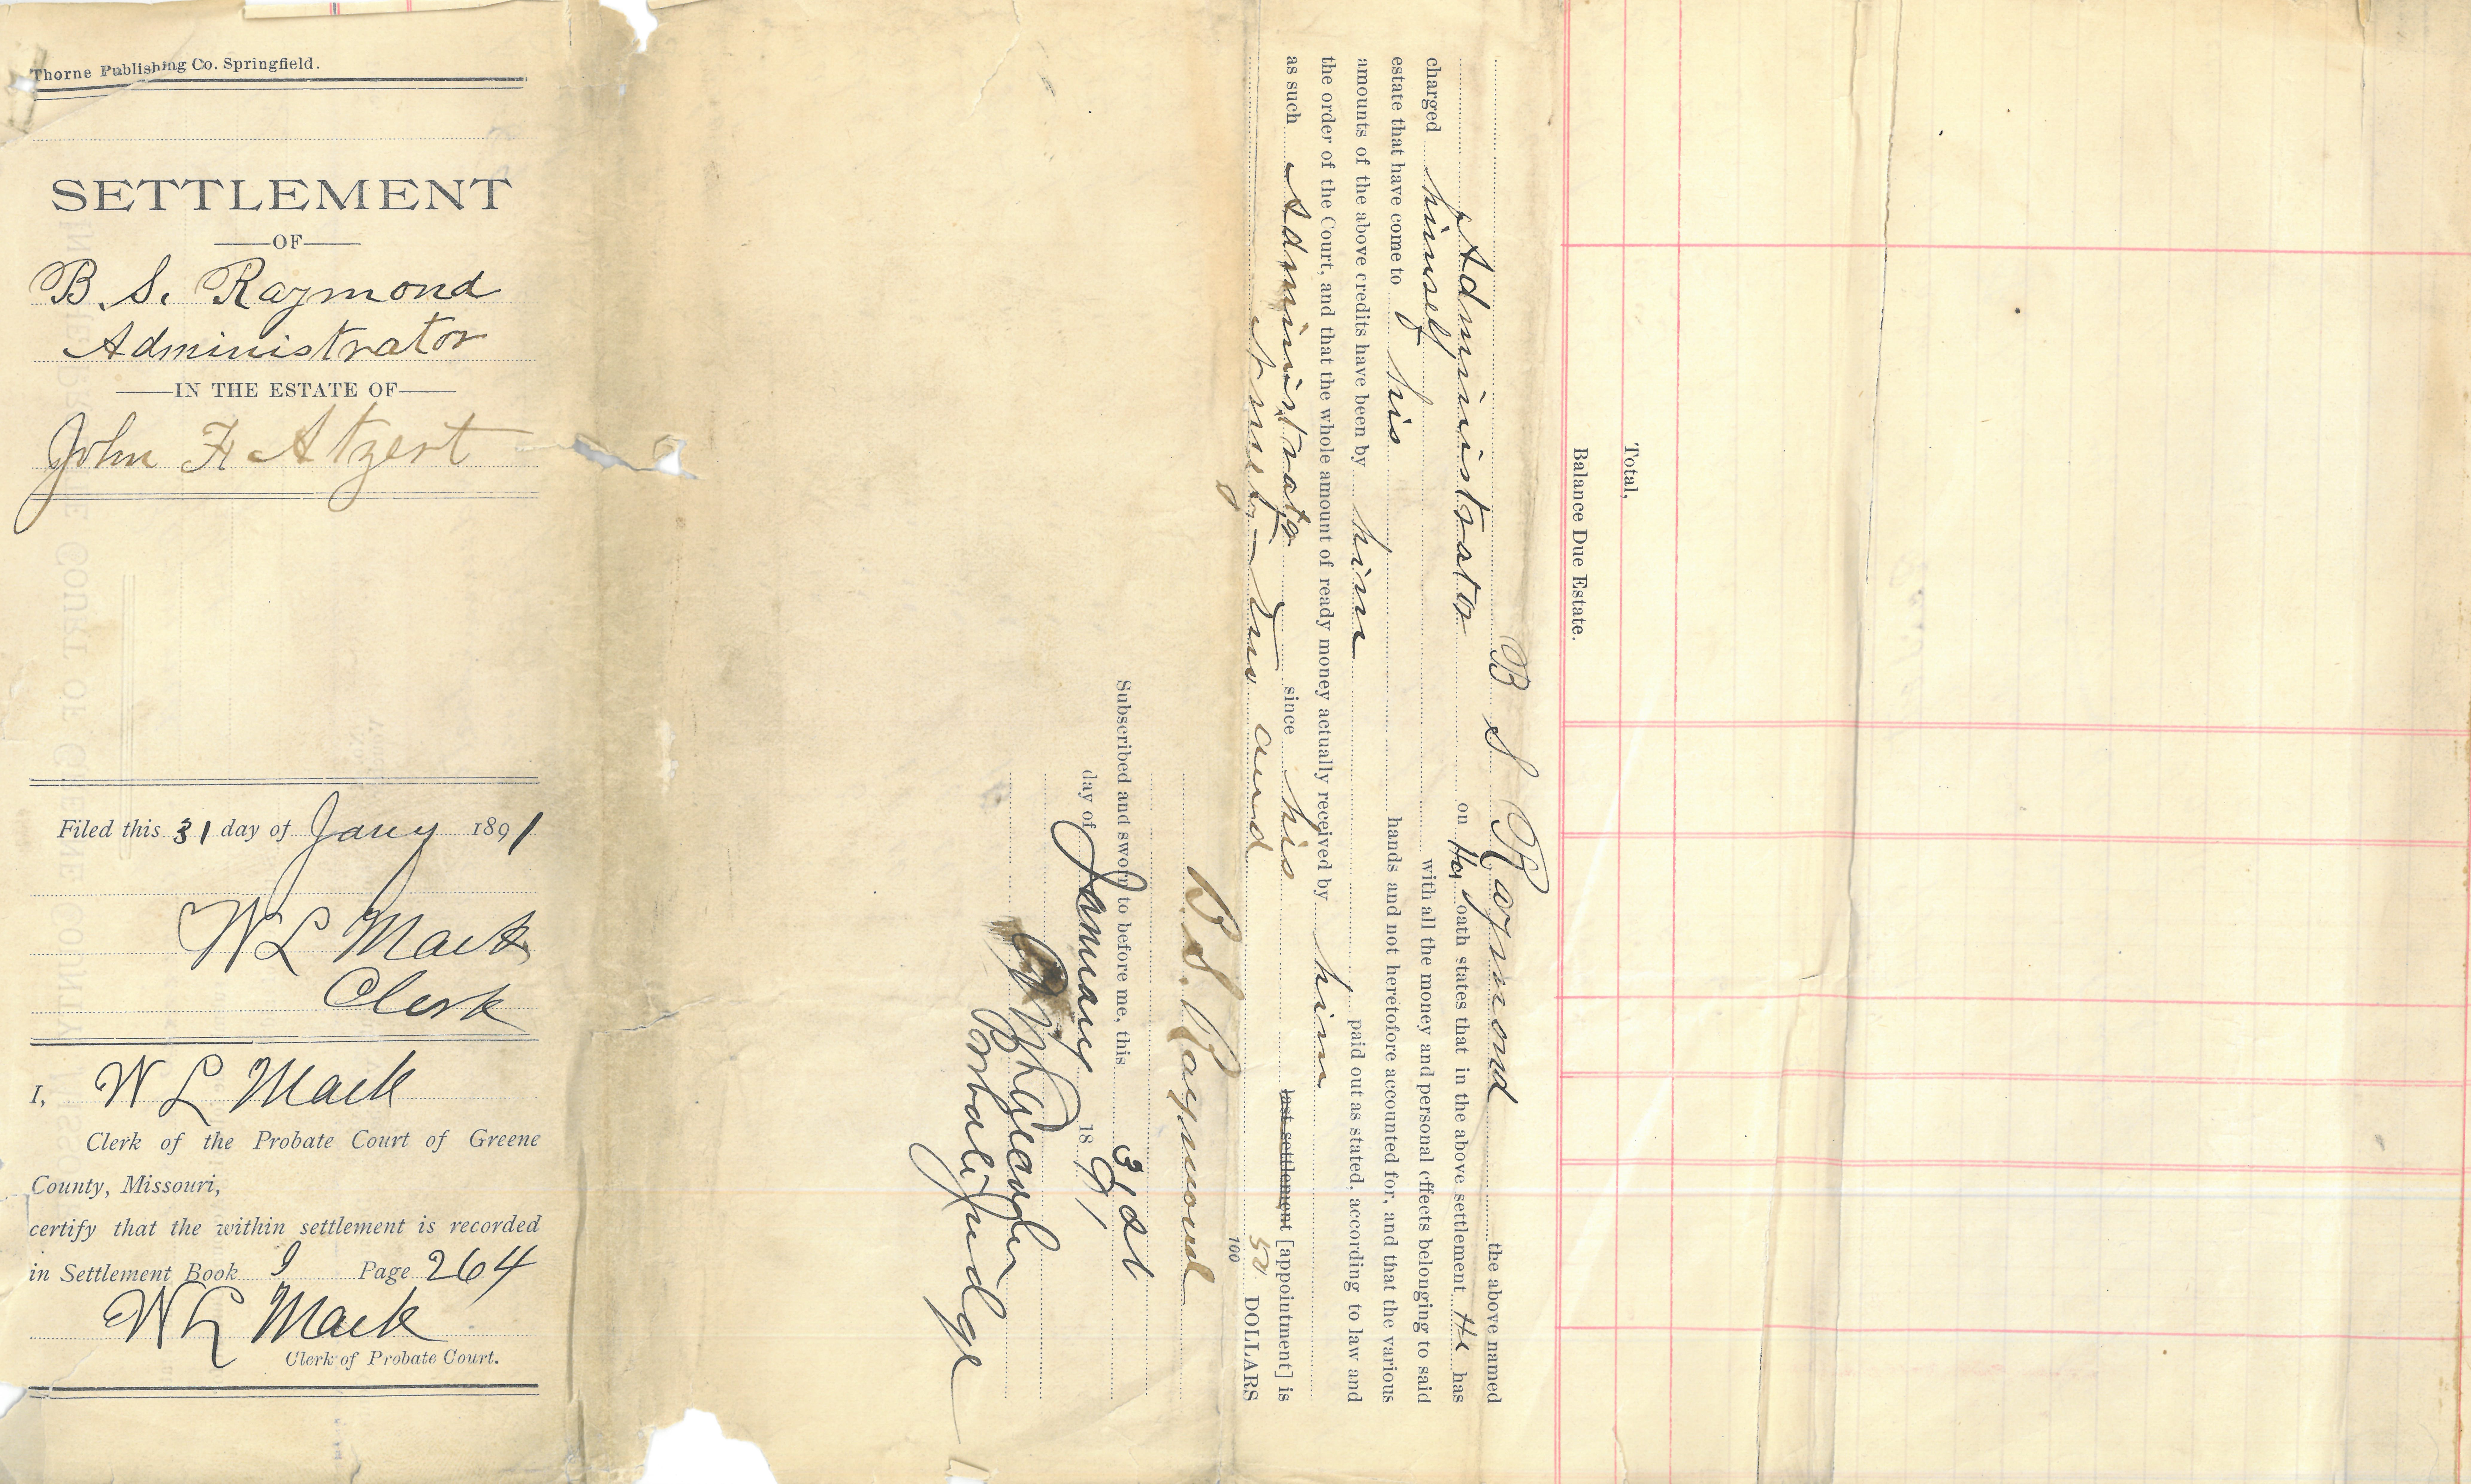 Thorne Publishing Co. Springfield.
SETTLEMENT
OF
B. S. Raymond
Administrator
IN THE ESTATE OF
John F Atzert
Filed this 31 day of Jany 1891
W L Mack
Clerk
I, W L Mack
Clerk of the Probate Court of Greene
County, Missouri,
certify that the within settlement is recorded
in Settlement Book I Page 264
W L Mack
Clerk of Probate Court.
Total,
Balance Due Estate.
B S Raymond the above named
Administrator on his oath states that in the above settlement He has
charged himself with all the money and personal effects belonging to said
estate that have come to his hands and not heretofore accounted for, and that the various
amounts of the above credits have been by him paid out as stated, according to law and
the order of the Court, and that the whole amount of ready money actually received by him
as such Administrator since his last settlement [appointment] is
Ninety-two and 50/100 DOLLARS
B. S. Raymond
Subscribed and sworn to before me, this 31st
day of January 1891
Probate Judge